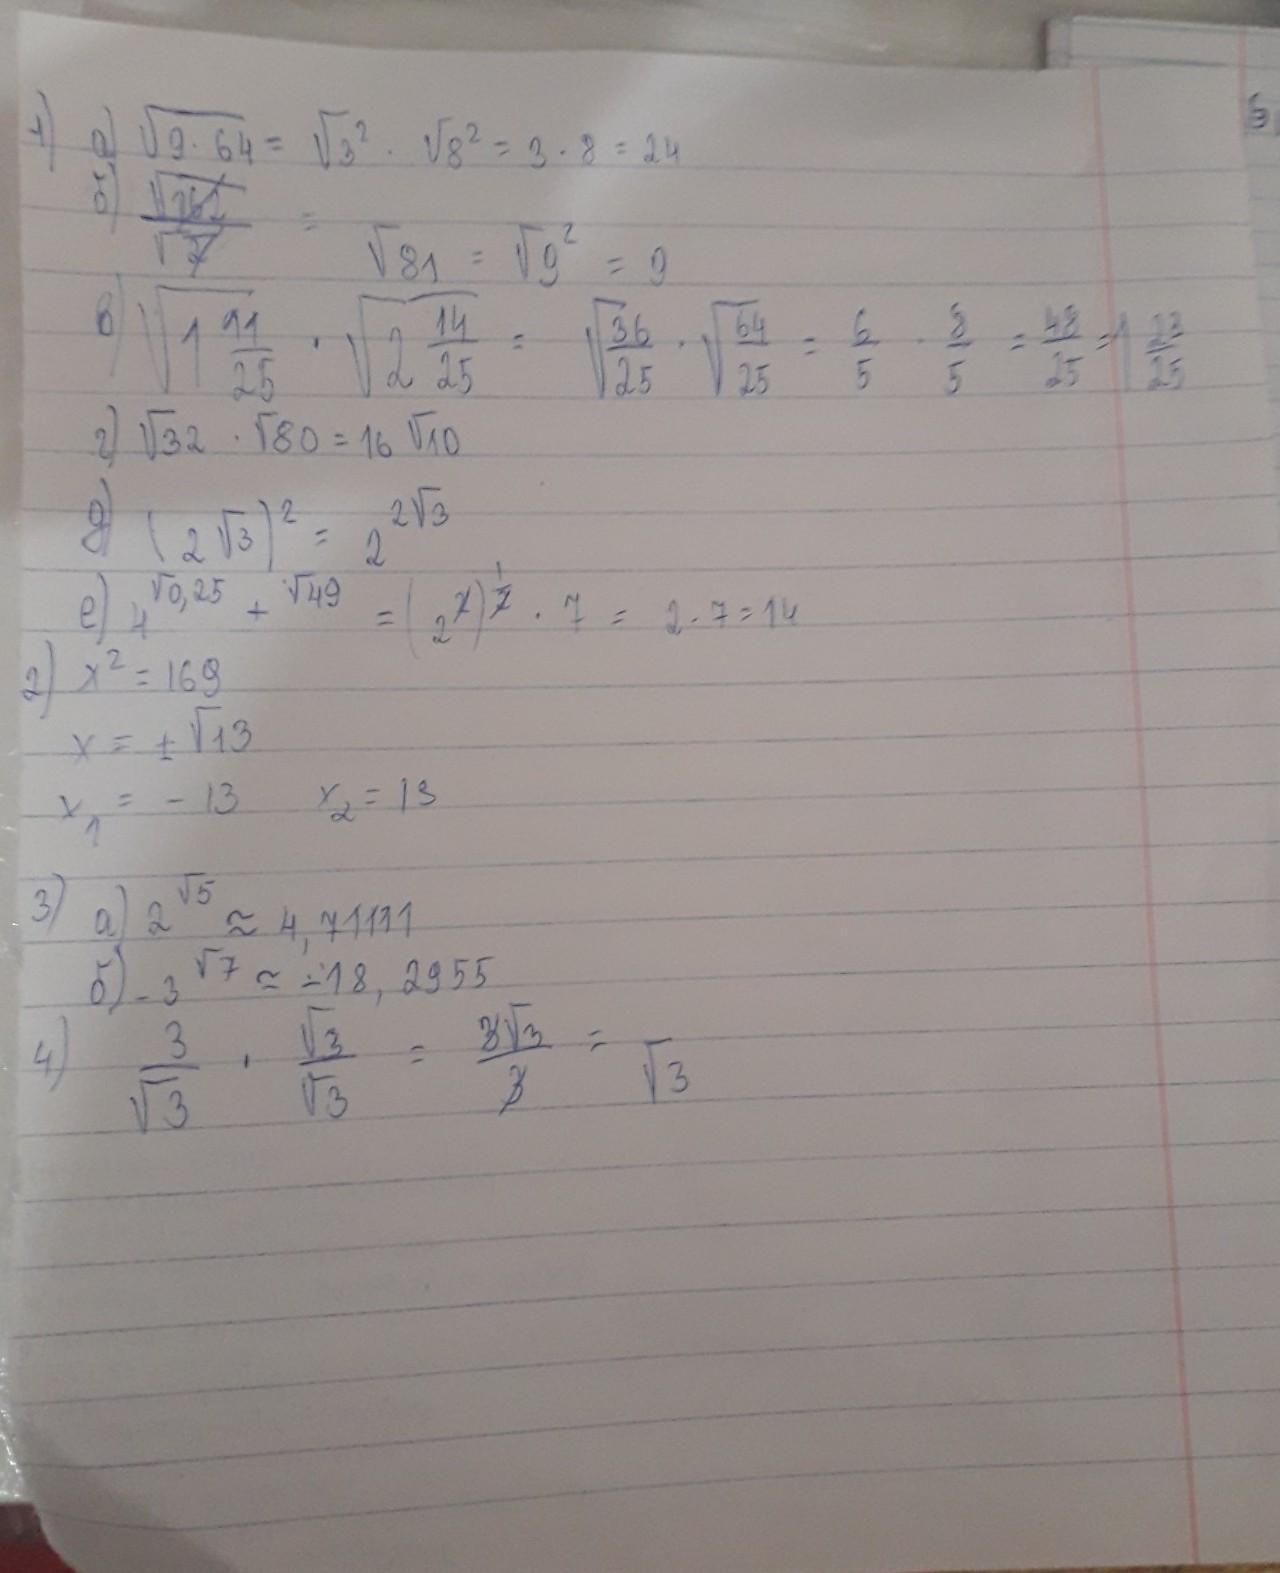 1) а) √9·64 = √3² · √8² = 3 · 8 = 24
б) √162/√2 = √81 = √9² = 9
в) √1 11/25 · √2 14/25 = √36/25 · √64/25 = 6/5 · 8/5 = 48/25 = 1 23/25
г) √32 · √80 = 16 √10
д) (2√3)² = 2^2√3
е) 4^√0,25 + √49 = (2^2)^1/2 · 7 = 2 · 7 = 14
2) x² = 169
x = ± √13
x₁ = - 13 x₂ = 13
3) а) 2^√5 ≈ 4,71111
б) - 3^√7 ≈ -18, 2955
4) 3/√3 · √3/√3 = 3√3/3 = √3